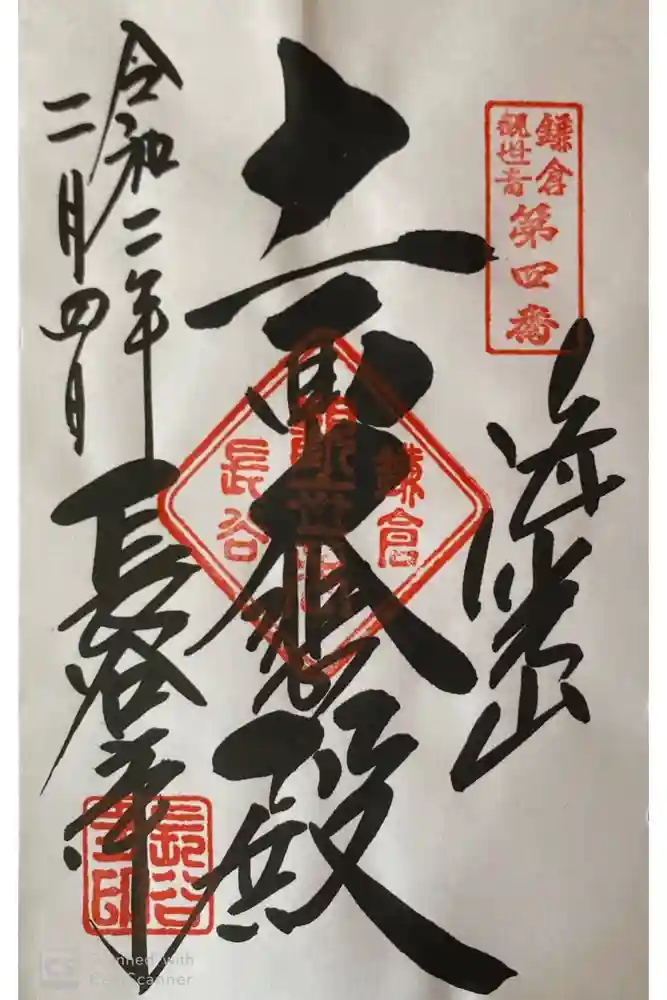 鎌倉
観世音
第四番
海光山
十一面大悲殿
鎌倉
観世音
長谷
令和二年
二月四日
長谷寺
長谷
寺印
Scanned with
CamScanner